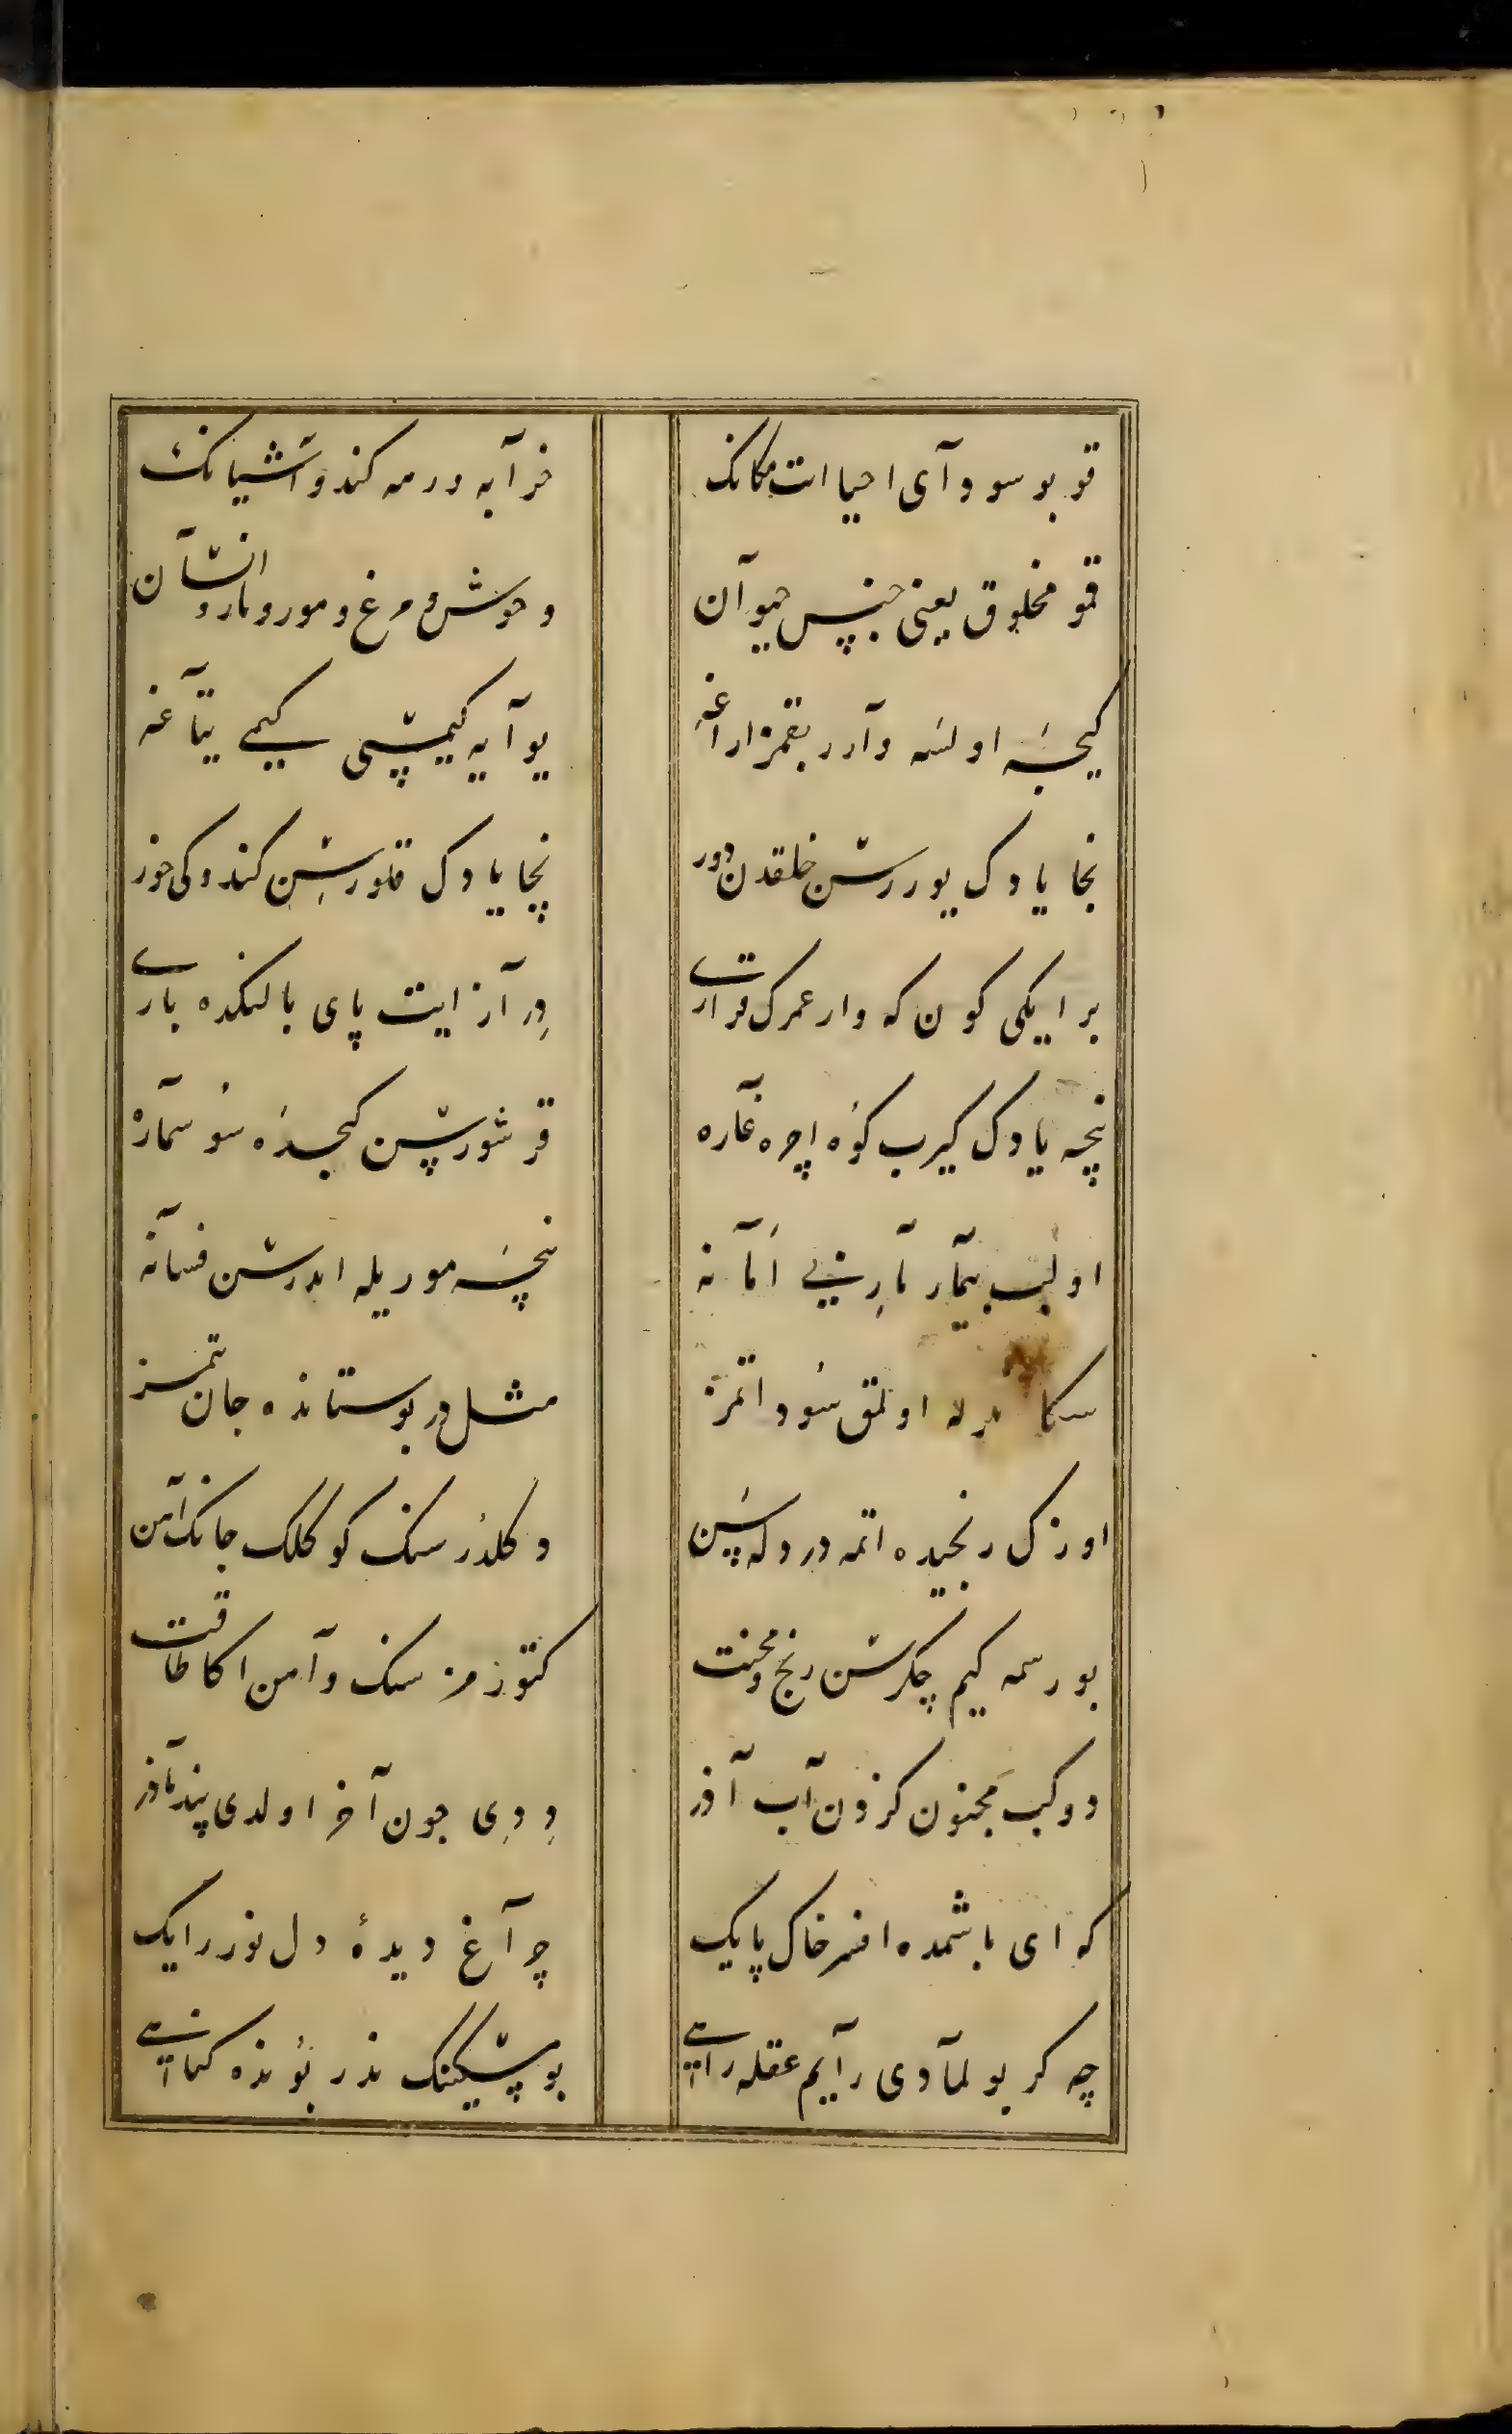 قو بو سودآی احیا ات مکانک خرآبه ورمه کندو آشیانک
قمو مخلوق یعنی جنس حیوآن وحوش و مرغ و مور و مار و انسآن
کیجه اولسه وآرر بقمز ارآغه یوآیه کیمسی کیمی یتآغه
نجا یا دک یوررسن خلقدن دور نجا یا دک قلورسن کندوکی خور
بر ایکی کون که وار عمرک قرآرت درآز ایت پای بالنکده باری
نیجه یا دک کیرب کوه اچره غآره قرشورسن کیجه سوسمآره
اولب بیمآر مار امآنه نیجه مور یله ایدرسن فسآنه
سکا اولمق سودا تمز مثل در بوستانده جان بتمز
اوزک رنجیده اتمه دردکه سن دکلدر سنک کوکلک جانک آهن
بو رسمه کیم چکرسن رنج و محنت کتورمز سنک وآهن اکا طاقت
دوکب مجنون کزون آب آذر ددی چون آخر اولدی پند مآدر
که ای باشمده افسر خاک پایک چرآغ دیدهٔ دل نور رایک
چه کر بولمآدی رآیم عقله رآهی بو مشکینک ندر بونده کنآهی